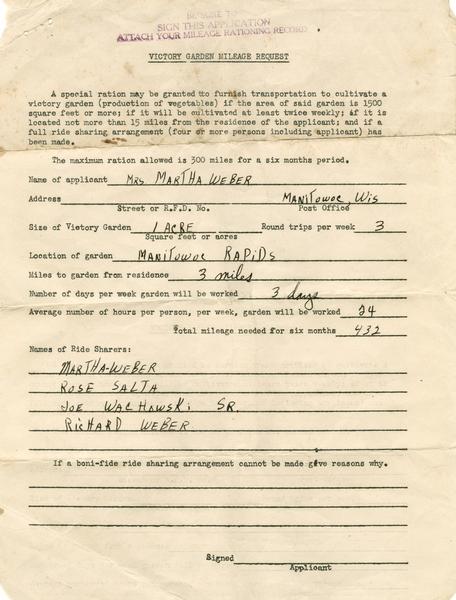 BE SURE TO
SIGN THIS APPLICATION
ATTACH YOUR MILEAGE RATIONING RECORD
VICTORY GARDEN MILEAGE REQUEST
A special ration may be granted to furnish transportation to cultivate a
victory garden (production of vegetables) if the area of said garden is 1500
square feet or more; if it will be cultivated at least twice weekly; if it is
located not more than 15 miles from the residence of the applicant; and if a
full ride sharing arrangement (four or more persons including applicant) has
been made.
The maximum ration allowed is 300 miles for a six months period.
Name of applicant MRS MARTHA WEBER
Address MANITOWOC, Wis
Street or R.F.D. No. Post Office
Size of Victory Garden 1 ACRE Round trips per week 3
Square feet or acres
Location of garden MANITOWOC RAPIDS
Miles to garden from residence 3 miles
Number of days per week garden will be worked 3 days
Average number of hours per person, per week, garden will be worked 24
Total mileage needed for six months 432
Names of Ride Sharers:
MARTHA-WEBER
ROSE SALTA
JOE WACHOWSKI SR.
RICHARD WEBER
If a boni-fide ride sharing arrangement cannot be made give reasons why.
Signed
Applicant